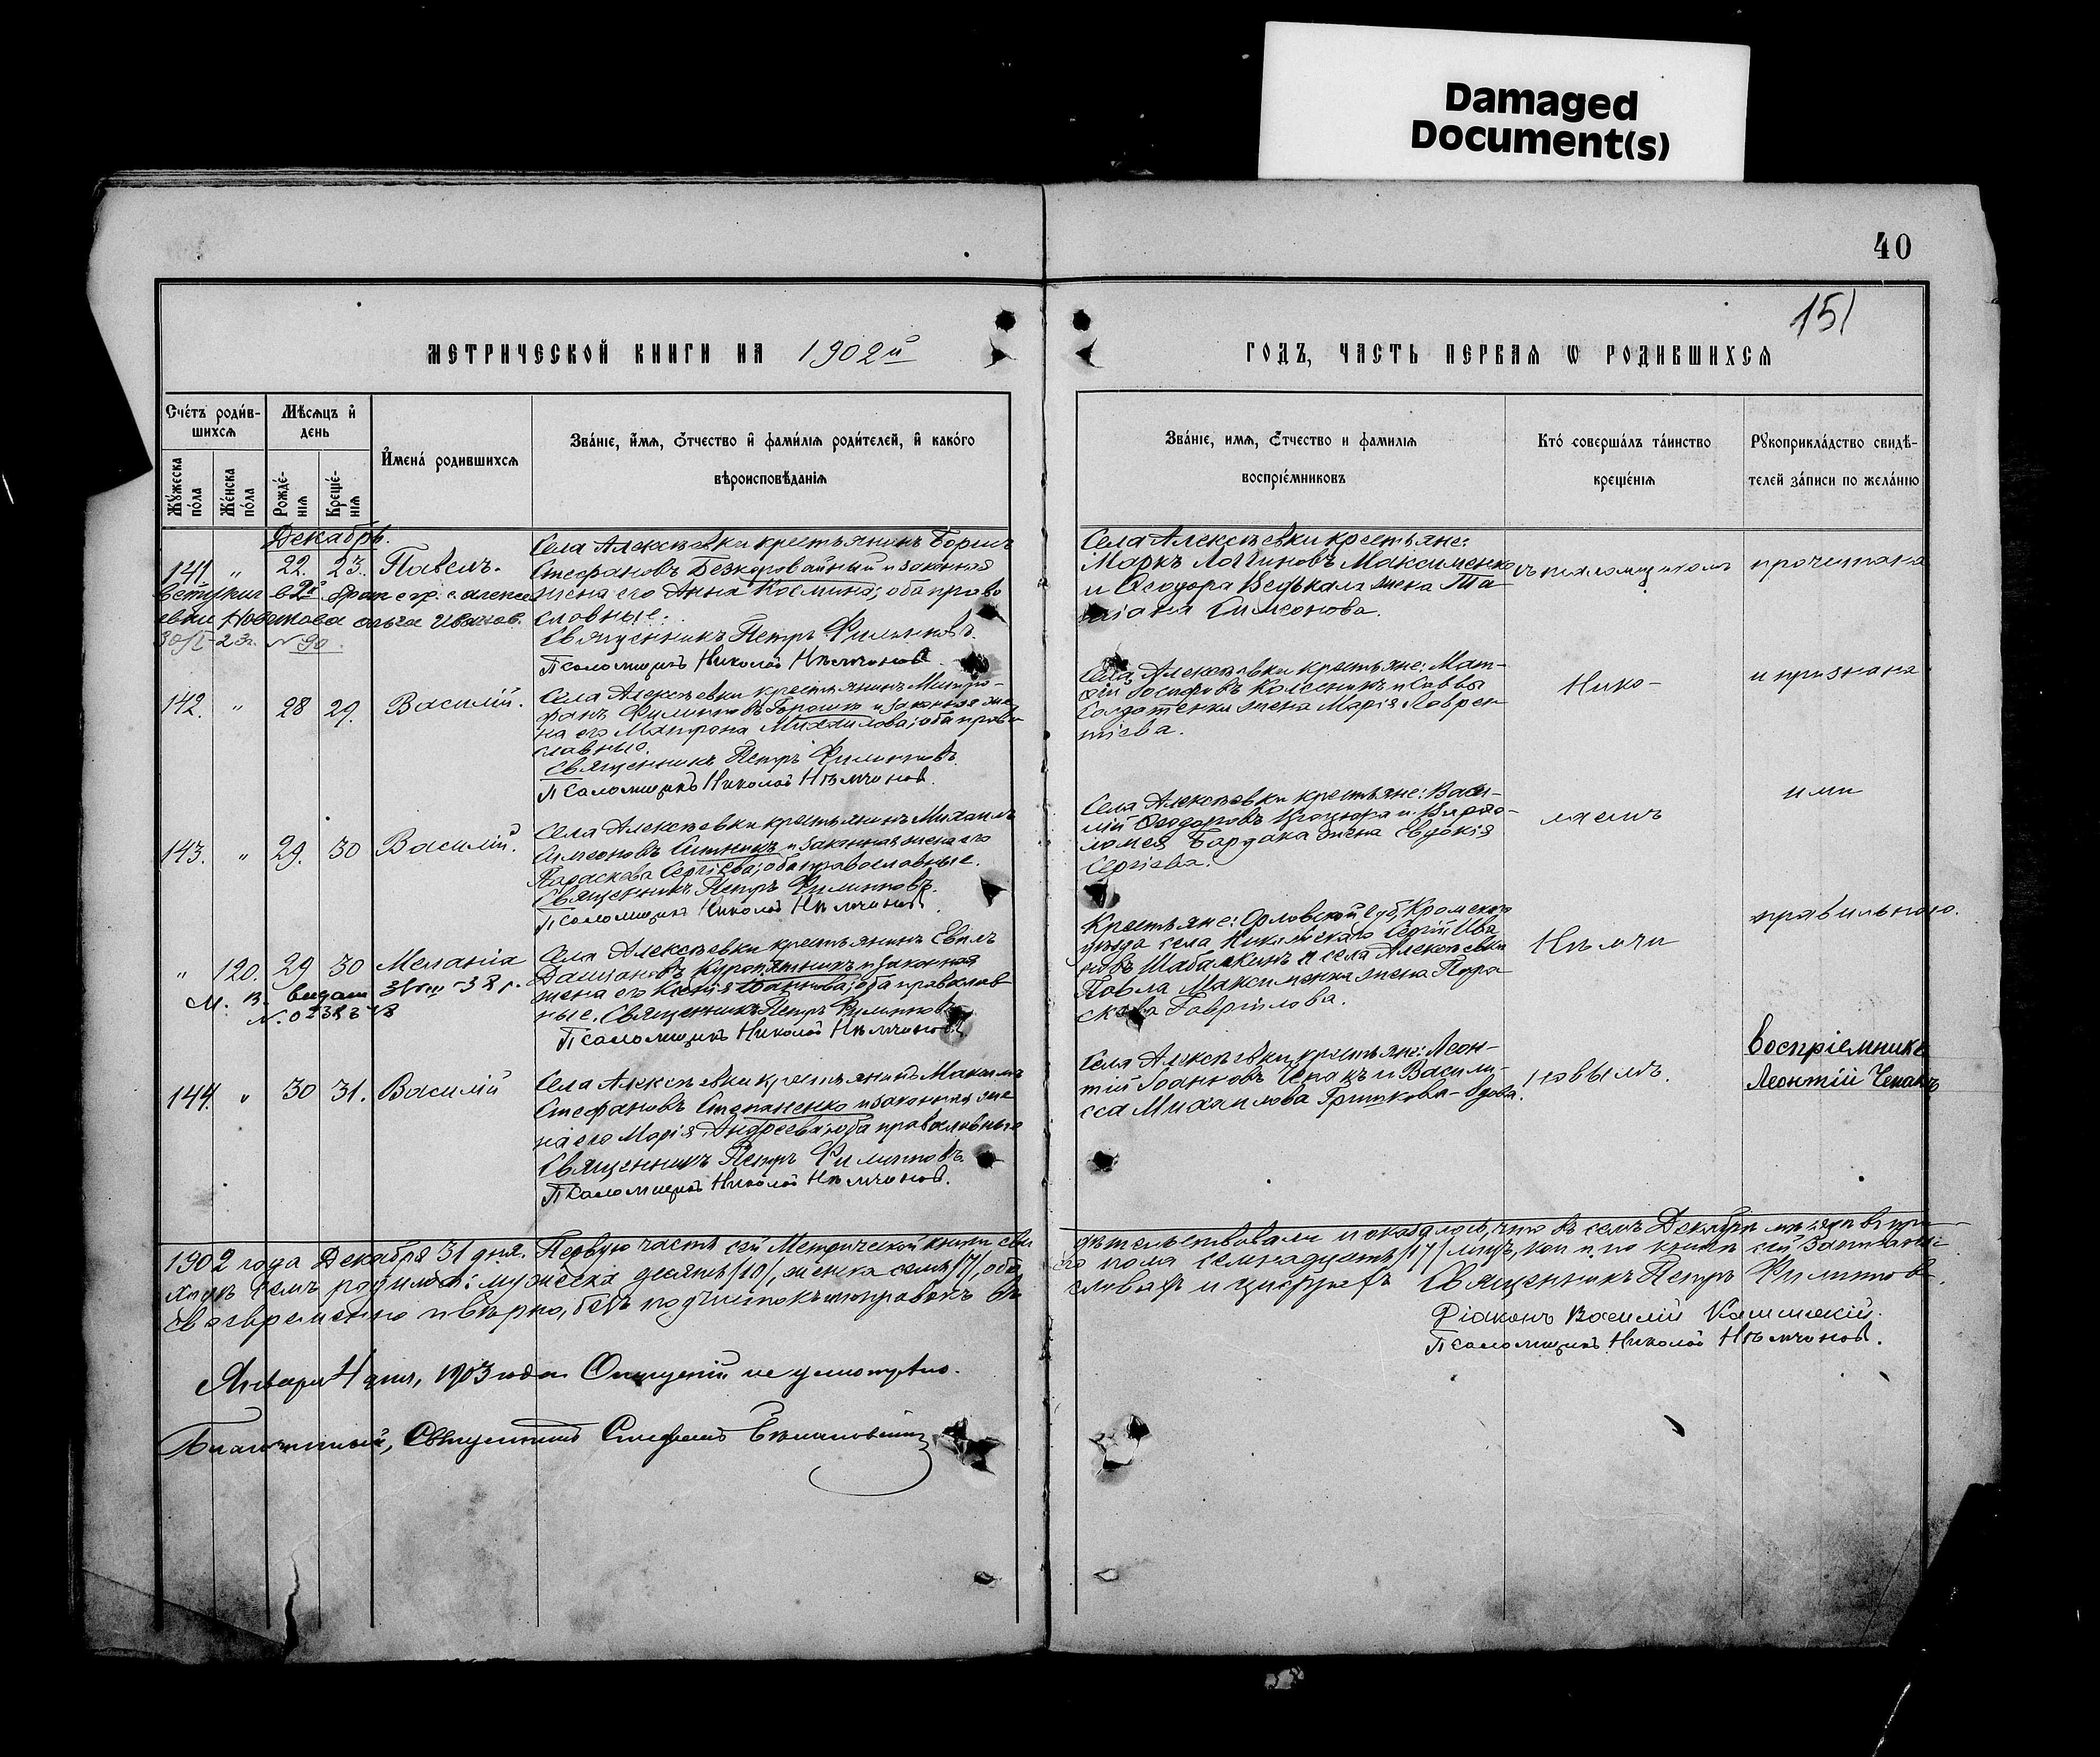 Damaged
Document(s)
40
151
МЕТРИЧЕСКОЙ КНИГИ НА 1902й
ГОДЪ, ЧАСТЬ ПЕРВАѦ Ѡ РОДИВШИХСѦ
Сче́тъ роди́в-
шихсѧ
Мѣ́сѧцъ и҆
день
Му́жеска
по́ла
Же́нска
по́ла
Рожде́-
нїѧ
Креще́-
нїѧ
И҆мена̀ родившихсѧ
Зва́нїе, и҆́мѧ, ѻ҆́тчество и҆ фами́лїѧ роди́телей, и҆ како́го
вѣроисповѣ́данїѧ
Зва́нїе, имѧ, ѻ҆́тчество и фамилїѧ
воспрїе́мниковъ
Кто̀ соверша́лъ та́инство
креще́нїѧ
Рꙋкоприкла́дство свидѣ́-
телей за́писи по жела́нїю
Декабрь.
141 " 22. 23. Павелъ.
Села Алексѣевки крестьянинъ Борисъ
Стефановъ Безкоровайный и законная
жена его Анна Космина; оба право
славные.
Священникъ Петръ Филипповъ.
Псаломщикъ Николай Нѣмчиновъ.
30/I-23г. № 90.
Села Алексѣевки крестьяне:
Маркъ Логгиновъ Максименко
и Ѳеодора Ведькала жена Та
тіана Симеонова.
съ псаломщикомъ
прочитана
142. " 28 29. Василій.
Села Алексѣевки крестьянинъ Митро-
фанъ Филипповъ Горошко и законная же
на его Матрона Михаилова; оба право
славные.
Священникъ Петръ Филипповъ.
Псаломщикъ Николай Нѣмчиновъ.
Села Алексѣевки крестьяне: Мат-
ѳій Іосифовъ Колесникъ и Саввы
Солдатенка жена Марія Лаврен
тіева.
Нико-
и признана
143. " 29. 30 Василій.
Села Алексѣевки крестьянинъ Михаилъ
Симеоновъ Ситникъ и законная жена его
Параскева Сергіева; оба православные.
Священникъ Петръ Филипповъ.
Псаломщикъ Николай Нѣмчиновъ.
Села Алексѣевки крестьяне: Васи-
лій Ѳеодоровъ и Варѳо-
ломея Бардака жена Евдокія
Сергіева.
лаемъ
ими
" 120. 29 30 Меланія
М. в. видан
Села Алексѣевки крестьянинъ
Даміановъ Куропятникъ и законная
жена его Ксенія Іоаннова; оба православ
ные. Священникъ Петръ Филипповъ
Псаломщикъ Николай Нѣмчиновъ.
Крестьяне: Орловской губ. Кромского
уѣзда села Никольскаго Сергій Ива
новъ Шабалкинъ и села Алексѣевки
Павла Максименка жена Пара
скева Гавріилова.
Нѣмчи
правильною.
144. " 30 31. Василій
Села Алексѣевки крестьянинъ Максимъ
Стефановъ Степаненко и законная же
на его Марія Андреева; оба православные
Священникъ Петръ Филипповъ.
Псаломщикъ Николай Нѣмчиновъ.
Села Алексѣевки крестьяне: Леон-
тій Іоанновъ Чепакъ и Васили-
сса Михаилова Гришкова - вдова.
новымъ.
Воспріемникъ
Леонтій Чепакъ
1902 года Декабря 31 дня. Первую часть сей Метрической книги сви
дѣтельствовали и оказалось, что въ семъ Декабрѣ мѣсяцѣ въ при
ходѣ семъ родилось: мужеска десять /10/, женска семь /7/, обо
его пола семнадцать /17/ лицъ, кои и по книгѣ сей записаны
своевременно и вѣрно, безъ подчистокъ и поправокъ въ
словахъ и цифрахъ Священникъ Петръ Филипповъ.
Діаконъ Василій
Псаломщикъ Николай Нѣмчиновъ.
Января 4 дня, 1903 года Опущеній не усмотрѣно.
Благочинный, Священникъ Стефанъ